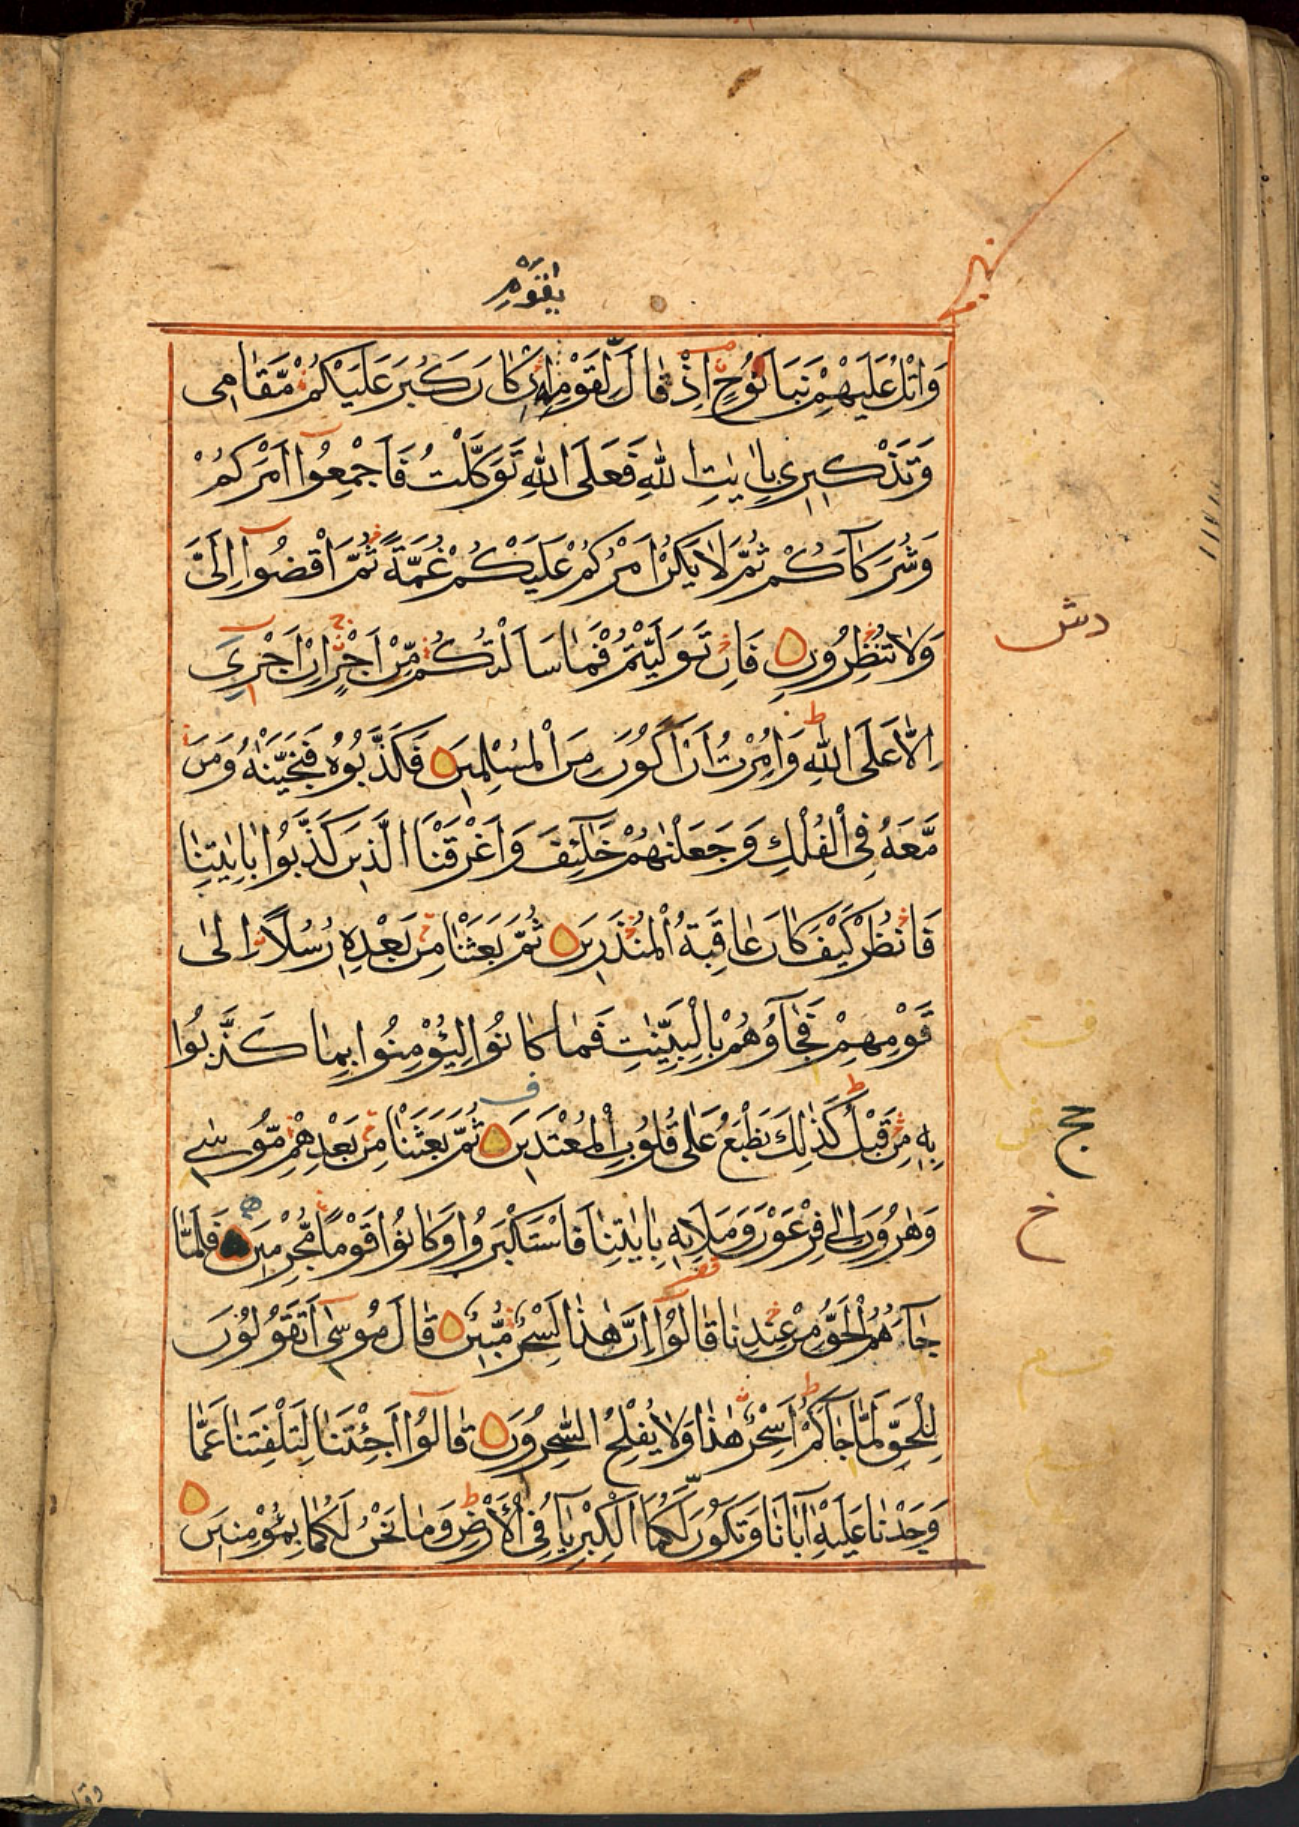 يٰقَوْمِ
وَاتْلُ عَلَيْهِمْ نَبَاَ نُوْحٍ اِذْ قَالَ لِقَوْمِهٖ اِنْ كَانَ كَبُرَ عَلَيْكُمْ مَّقَامِى
وَتَذْكِيرِى بِاٰيٰتِ اللّٰهِ فَعَلَى اللّٰهِ تَوَكَّلْتُ فَاَجْمِعُوٓا اَمْرَكُمْ
وَشُرَكَآءَكُمْ ثُمَّ لَا يَكُنْ اَمْرُكُمْ عَلَيْكُمْ غُمَّةً ثُمَّ اقْضُوٓا اِلَىَّ
وَلَا تُنْظِرُوْنِ فَاِنْ تَوَلَّيْتُمْ فَمَا سَاَلْتُكُمْ مِّنْ اَجْرٍ اِنْ اَجْرِيَ
دش
اِلَّا عَلَى اللّٰهِ ط وَاُمِرْتُ اَنْ اَكُوْنَ مِنَ الْمُسْلِمِيْنَ فَكَذَّبُوْهُ فَنَجَّيْنٰهُ وَمَنْ
مَّعَهُ فِى الْفُلْكِ وَجَعَلْنٰهُمْ خَلٰٓئِفَ وَاَغْرَقْنَا الَّذِيْنَ كَذَّبُوْا بِاٰيٰتِنَا
فَانْظُرْ كَيْفَ كَانَ عَاقِبَةُ الْمُنْذَرِيْنَ ثُمَّ بَعَثْنَا مِنْ بَعْدِهٖ رُسُلًا اِلٰى
قَوْمِهِمْ فَجَآؤُهُمْ بِالْبَيِّنٰتِ فَمَا كَانُوْا لِيُؤْمِنُوْا بِمَا كَذَّبُوْا
بِهٖ مِنْ قَبْلُ ط كَذٰلِكَ نَطْبَعُ عَلٰى قُلُوْبِ الْمُعْتَدِيْنَ ثُمَّ بَعَثْنَا مِنْ بَعْدِهِمْ مُّوْسٰى
وَهٰرُوْنَ اِلٰى فِرْعَوْنَ وَمَلَا۟ئِهٖ بِاٰيٰتِنَا فَاسْتَكْبَرُوْا وَكَانُوْا قَوْمًا مُّجْرِمِيْنَ فَلَمَّا
جَآءَهُمُ الْحَقُّ مِنْ عِنْدِنَا قَالُوْٓا اِنَّ هٰذَا لَسِحْرٌ مُّبِيْنٌ قَالَ مُوْسٰٓى اَتَقُوْلُوْنَ
لِلْحَقِّ لَمَّا جَآءَكُمْ ط اَسِحْرٌ هٰذَا وَلَا يُفْلِحُ السّٰحِرُوْنَ قَالُوْٓا اَجِئْتَنَا لِتَلْفِتَنَا عَمَّا
وَجَدْنَا عَلَيْهِ اٰبَآءَنَا وَتَكُوْنَ لَكُمَا الْكِبْرِيَآءُ فِى الْاَرْضِ ط وَمَا نَحْنُ لَكُمَا بِمُؤْمِنِيْنَ